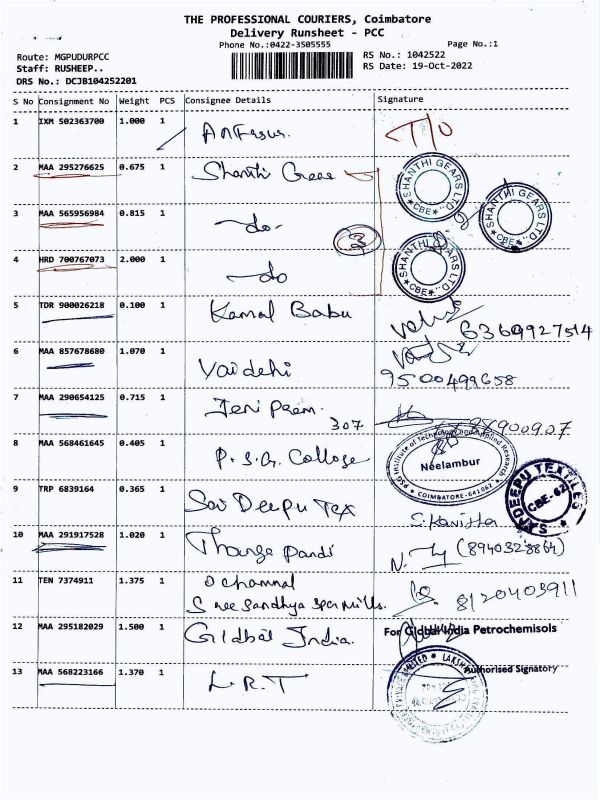 THE PROFESSIONAL COURIERS, Coimbatore
Delivery Runsheet - PCC
Phone No.:0422-3505555
Page No.:1
Route: MGPUDURPCC
RS No.: 1042522
Staff: RUSHEEP..
RS Date: 19-Oct-2022
DRS No.: DCJB104252201
S No Consignment No Weight PCS Consignee Details Signature
1 IXM 502363700 1.000 1 T/O
2 MAA 295276625 0.675 1 Shanthi SHANTHI GEARS LTD., CBE
3 MAA 565956984 0.815 1 -do- SHANTHI GEARS LTD., CBE
3
4 HRD 700767073 2.000 1 -do SHANTHI GEARS LTD., CBE
5 TDR 900026218 0.100 1 Kamal Babu 6369927514
6 MAA 857678680 1.070 1 Vaidehi
9500499658
7 MAA 290654125 0.715 1 Jeni Prem.
307
8 MAA 568461645 0.405 1 P.S.G. College
PSG Institute of Technology and Applied Research
Neelambur
COIMBATORE-641062
9 TRP 6839164 0.365 1 Sai Deepu Tex
SAIDEEPU TEXTILES
CBE-62
S.Kavitha
10 MAA 291917528 1.020 1 Thanga Pandi (8940328864)
11 TEN 7374911 1.375 1
Sree Sandhya Spg Mills. 8120403911
12 MAA 295182029 1.500 1 Gldbal India.
For Global India Petrochemisols
13 MAA 568223166 1.370 1 L.R.T
Authorised Signatory